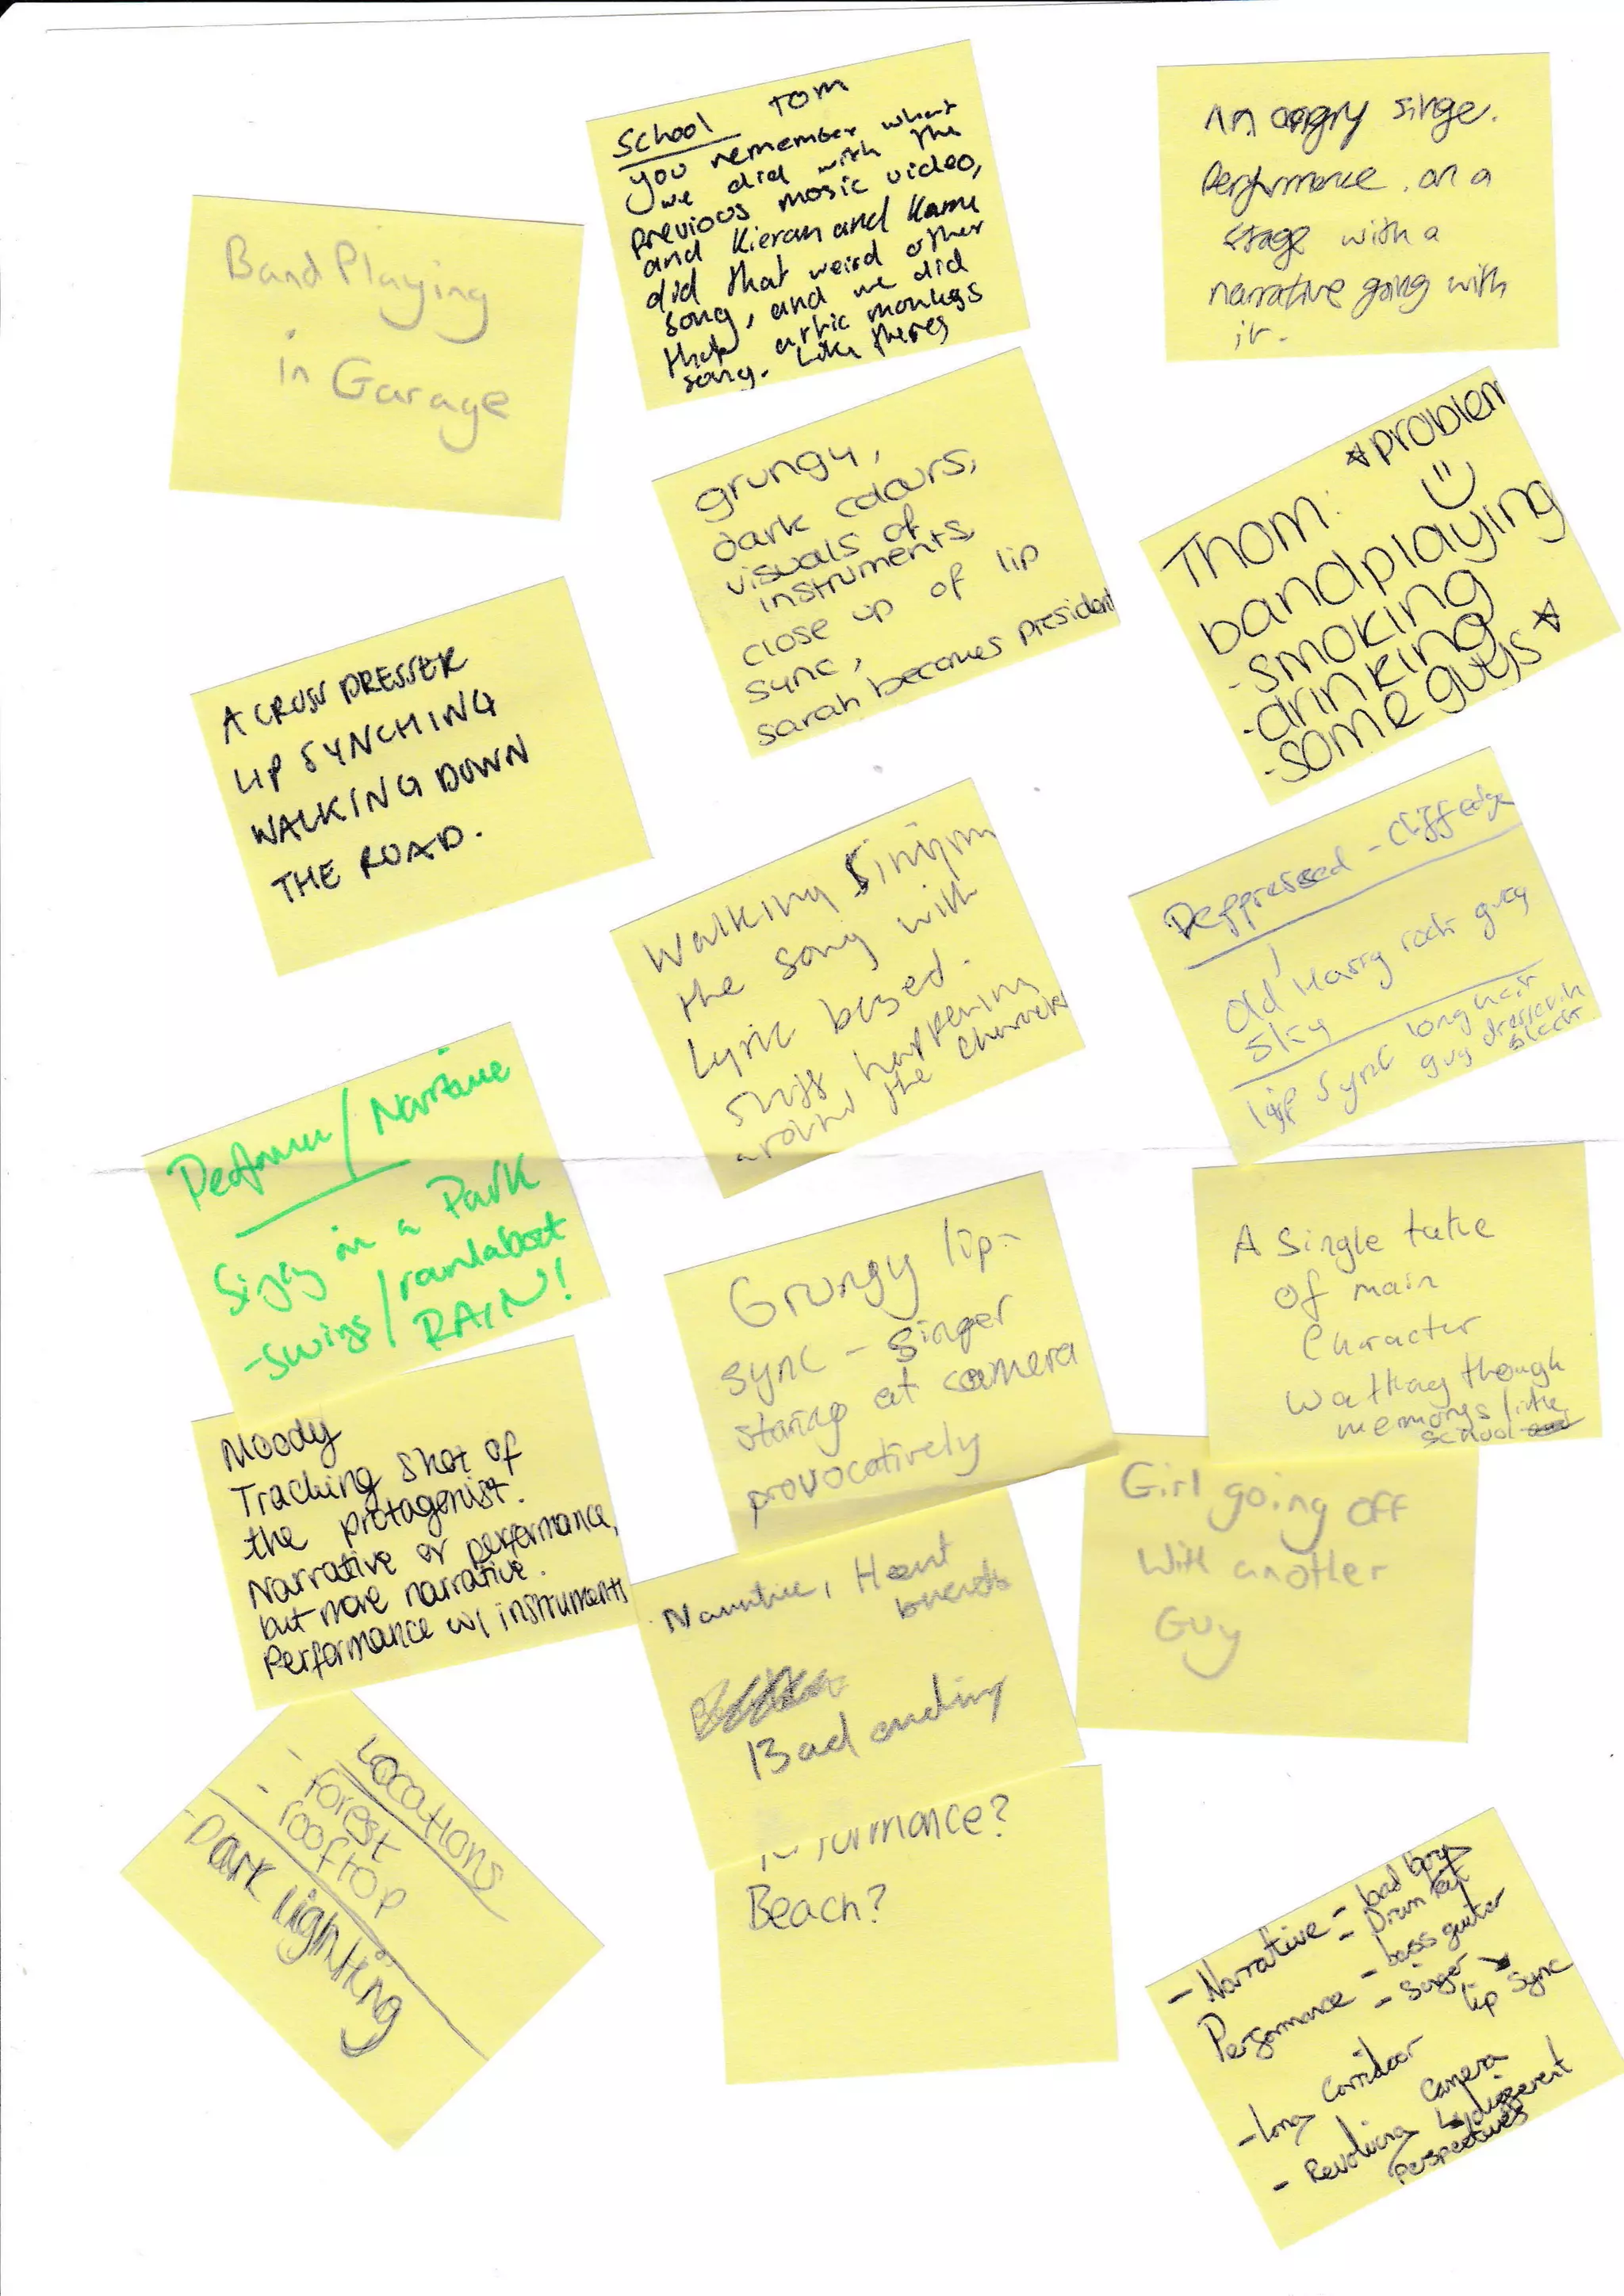 Band Playing
in Garage
School TOM
you remember what
we did with the
previous mosic video,
and Kieran and
did that weird other
song, and we did
that artic monkeys
song. Like theres
An angry singe.
Performance on a
stage with a
narrative going with
it.
grungy,
dark colours,
visuals of
instruments,
close up of lip
sync,
sarah becomes president
*problem
Thom: :)
bandplaying
-smoking
-drinking
-some guys *
A CROSS DRESSER
LIP SYNCHING
WALKING DOWN
THE ROAD.
Walking
the song with
Lyric based.
stuff happening
around the character
Deppressed - Cliff edge
Old Harry rock grey
Sky
lip sync long hair
guy dressed in
black
Performance / Narrative
in a Park
-swings / roundabout
RAIN!
Grungy lip-
sync - singer
staring at camera
provocatively
A Single take
Of main
Character
walking though
memorys like
school
Moody
Tracking shot of
the protagonist.
Narrative or performance,
but more narrative.
Performance w/ instruments
Narrative, Heart
Bad ending
Girl going off
With another
Guy
Locations
- forest
- rooftop
- Dark lighting
Beach?
- Narrative - bad boy
- Drum kit
Performance - bass guitar
- Singer → lip sync
- long corridoor
- Revolving Camera
↳ different
perspectives